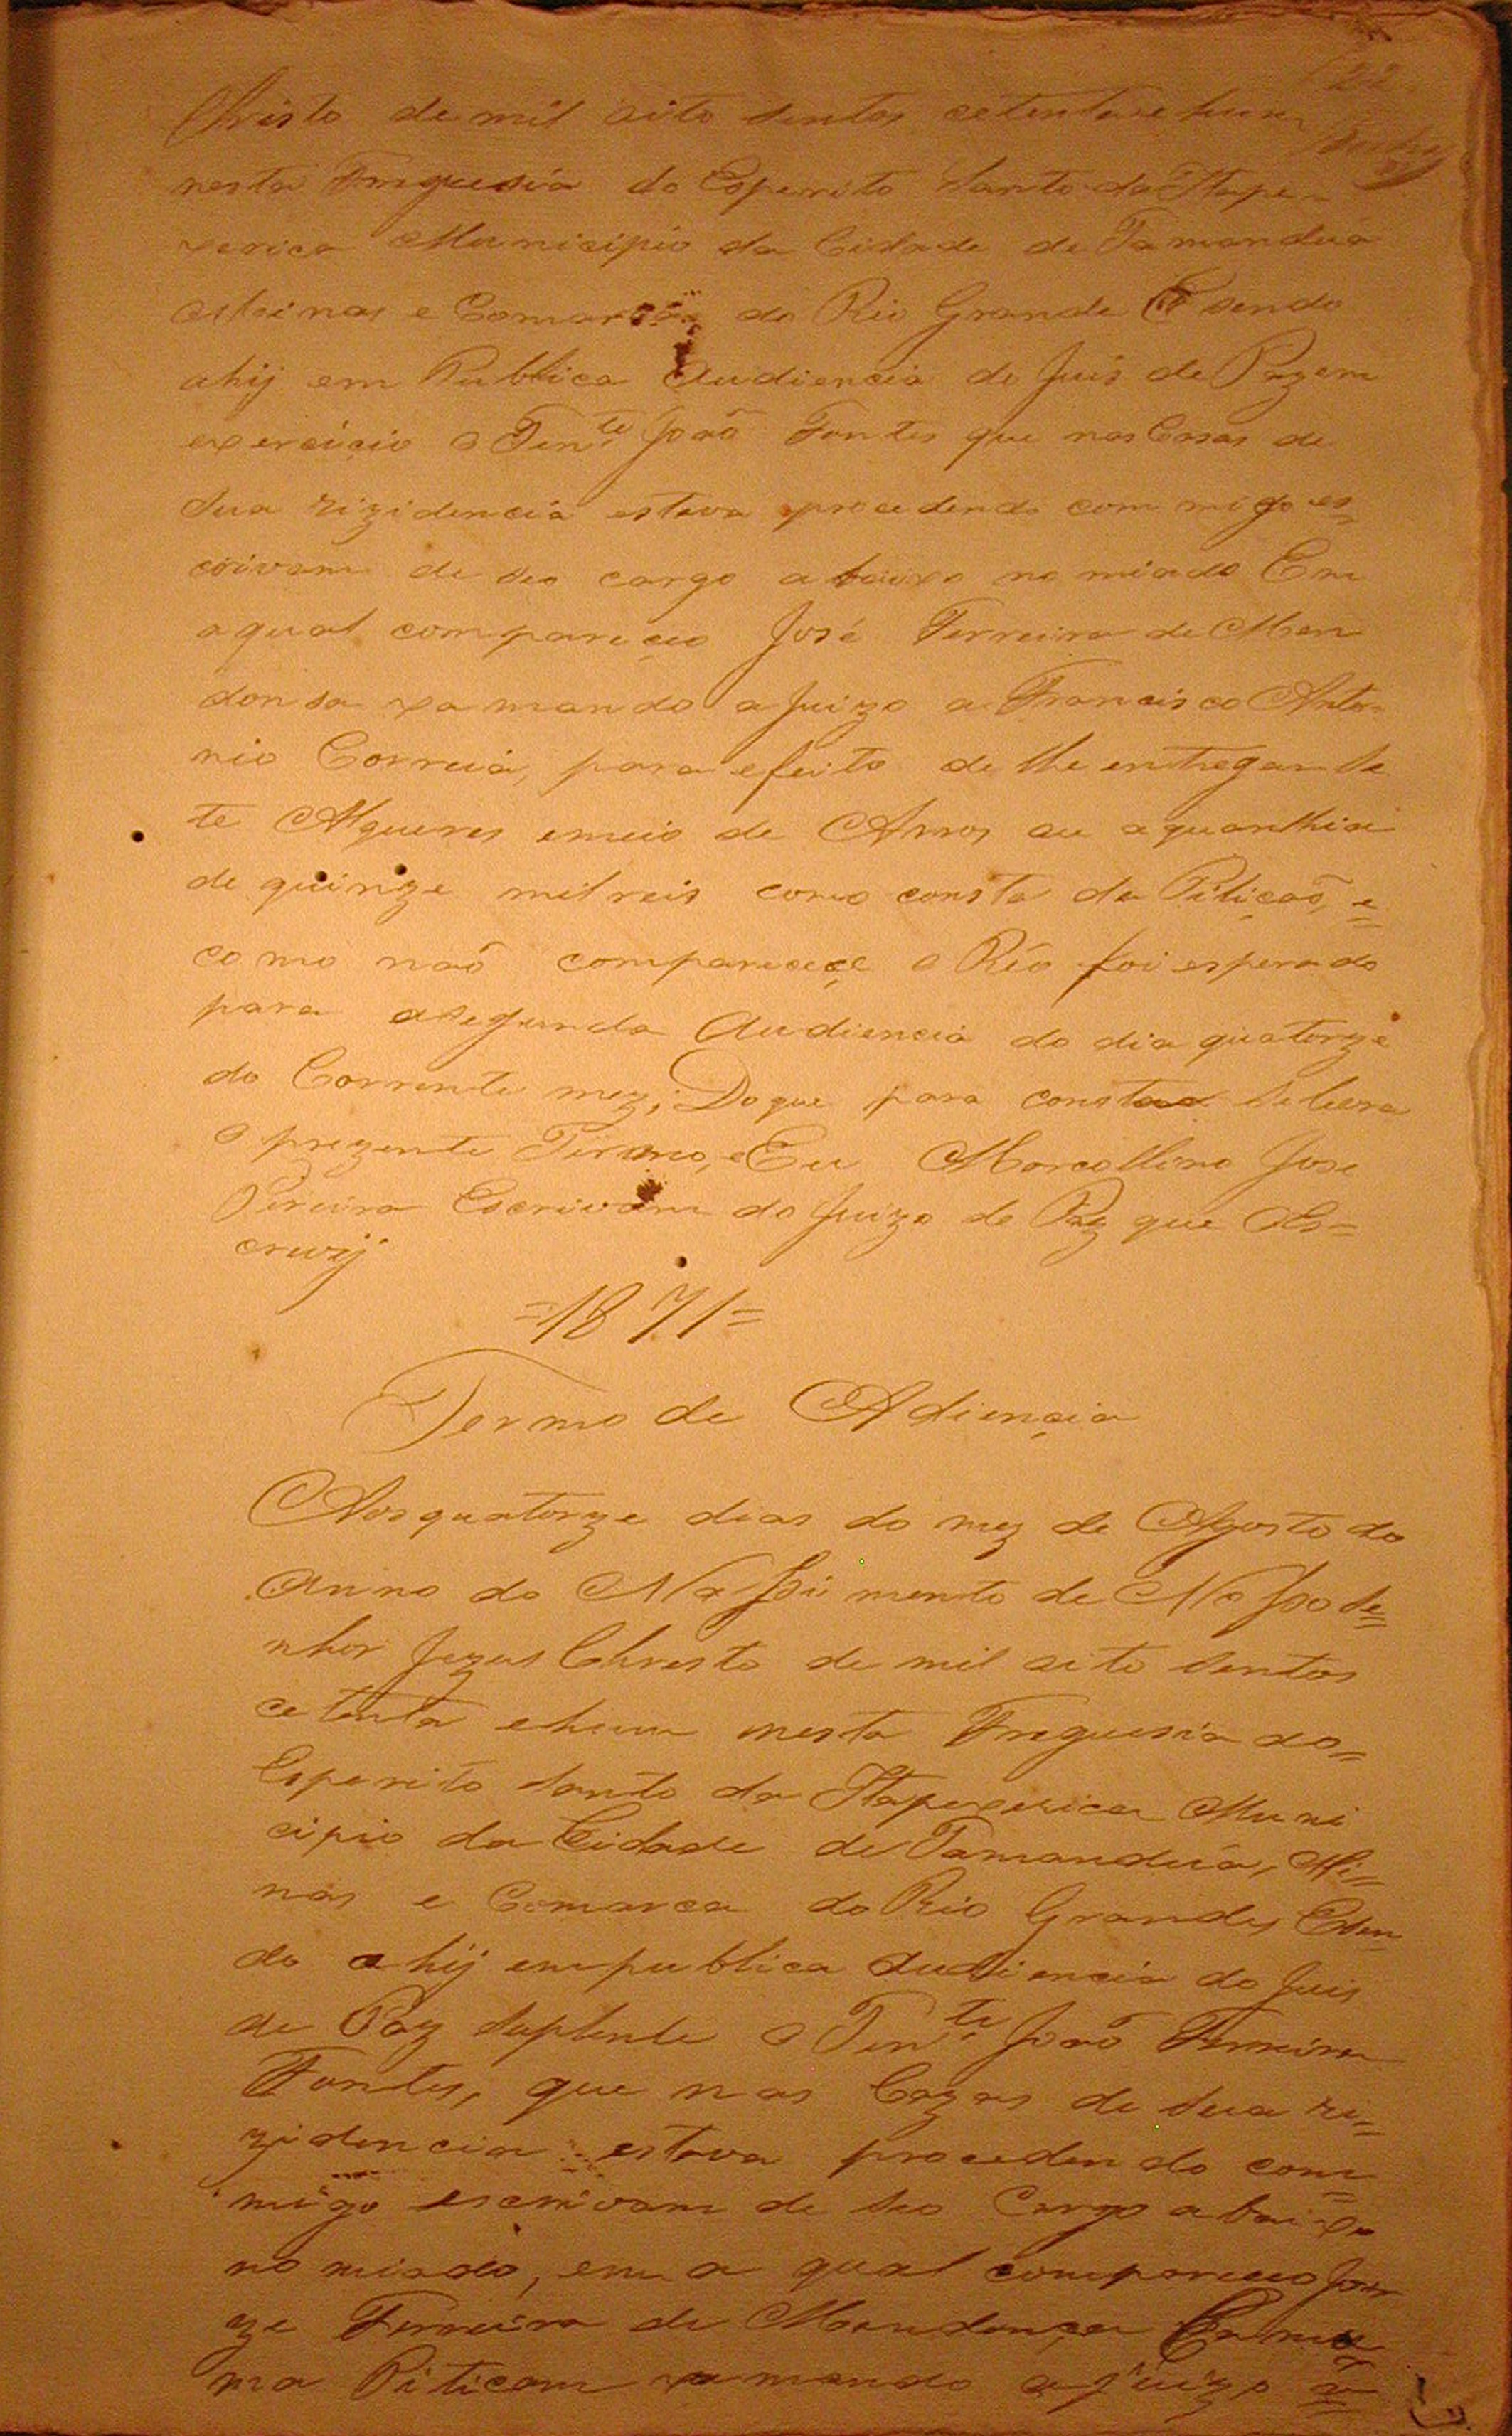 22
Christo de mil oito sentos cetenta e hum
nesta Freguesia do Esperito Santo da Itape-
xerica Municipio da Cidade de Tamanduá
Minas e Comarca do Rio Grande E sendo
ahij em Publica Audiencia do Juis de Paz em
exercicio o Ten.te João Fontes que nas Casas de
sua rizidencia estava procedendo com migo es=
crivam de seo cargo abaixo nomiado Em
a qual compareceo José Ferreira de Men
donsa xamando a Juizo a Francisco Anto-
nio Correia, para efeito de lhe entregar Se
te Alqueres e meio de Arros ou a quanthia
de quinze mil reis como consta da Pitição, e=
como não compareceçe o Réo foi esperado
para a segunda Audiencia do dia quatorze
do Corrente mez; Do que para constar se lavra
o prezente Termo, e Eu Marcollino Jose
Pereira Escrivam do Juizo de Paz que Es=
crevij
=1871=
Termo de Adiençia
Aos quatorze dias do mez de Agosto do
Anno do Nassimento de Nosso Se=
nhor Jezus Christo de mil oito sentos
cetenta e hum nesta Freguesia do=
Esperito Santo da Itapexerica Muni
cipio da Cidade de Tamanduá, Mi=
nas e Comarca do Rio Grande, E sen=
do ahij em publica Audiencia do Juis
de Paz Suplente o Ten.te João Ferreira
Fontes, que nas Cazas de sua re=
zidencia estava procedendo com=
migo escrivam de seo Cargo abaixo
nomiado, em a qual compareceo Jos
ze Ferreira de Mendonça
ma Piticam xamando a juizo